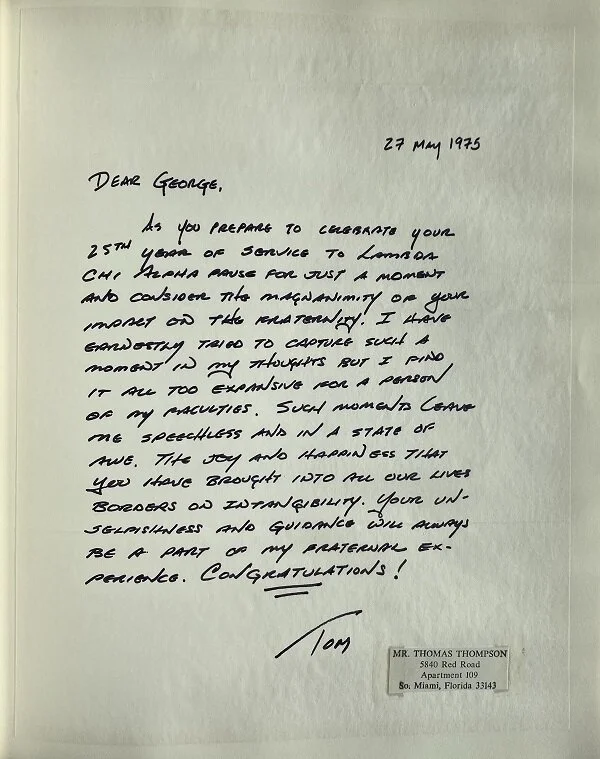 27 May 1975
Dear George,
As you prepare to celebrate your
25th year of service to Lambda
Chi Alpha pause for just a moment
and consider the magnanimity of your
impact on the fraternity. I have
earnestly tried to capture such a
moment in my thoughts but I find
it all too expansive for a person
of my faculties. Such moments leave
me speechless and in a state of
awe. The joy and happiness that
you have brought into all our lives
borders on intangibility. Your un-
selfishness and guidance will always
be a part of my fraternal ex-
perience. Congratulations!
Tom
MR. THOMAS THOMPSON
5840 Red Road
Apartment 109
So. Miami, Florida 33143